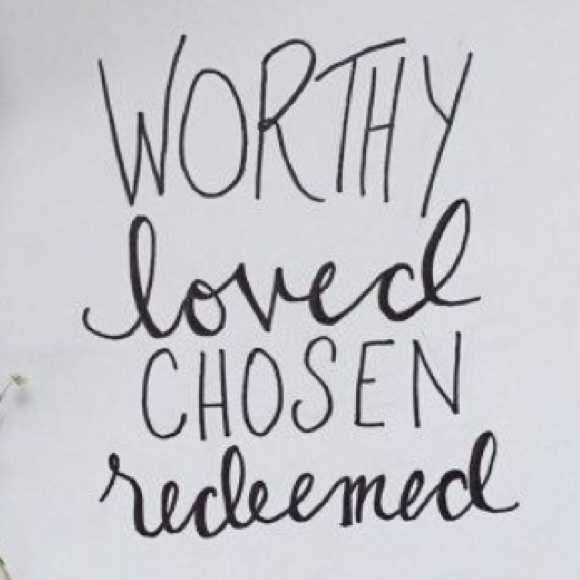 WORTHY
loved
CHOSEN
redeemed